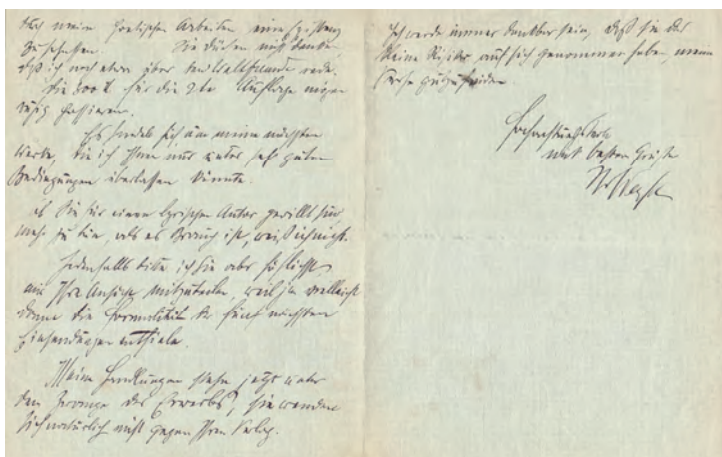 durch meine poetischen Arbeiten eine Existenz
zu schaffen. Sie dürfen nicht denken,
daß ich noch etwa über den Weltfreund rede.
Die 200 K für die 2te Auflage mögen
ruhig passieren.
Es handelt sich um meine nächsten
Werke, die ich Ihnen nur unter sehr guten
Bedingungen überlassen könnte.
Ob Sie für einen lyrischen Autor gewillt sind
mehr zu tun, als es Brauch ist, weiß ich nicht.
Jedenfalls bitte ich Sie aber höflichst
mir Ihre Ansicht mitzuteilen, weil ja vielleicht
dann die Formalität der fünf nächsten
Einsendungen entfiele.
Meine Handlungen stehn jetzt unter
dem Zwange des Erwerbs, sie wenden
sich natürlich nicht gegen Ihren Verlag.
Ich werde immer dankbar sein, daß sie das
kleine Risiko auf sich genommen haben, meine
Verse
Hochachtungsvoll
mit besten Grüßen